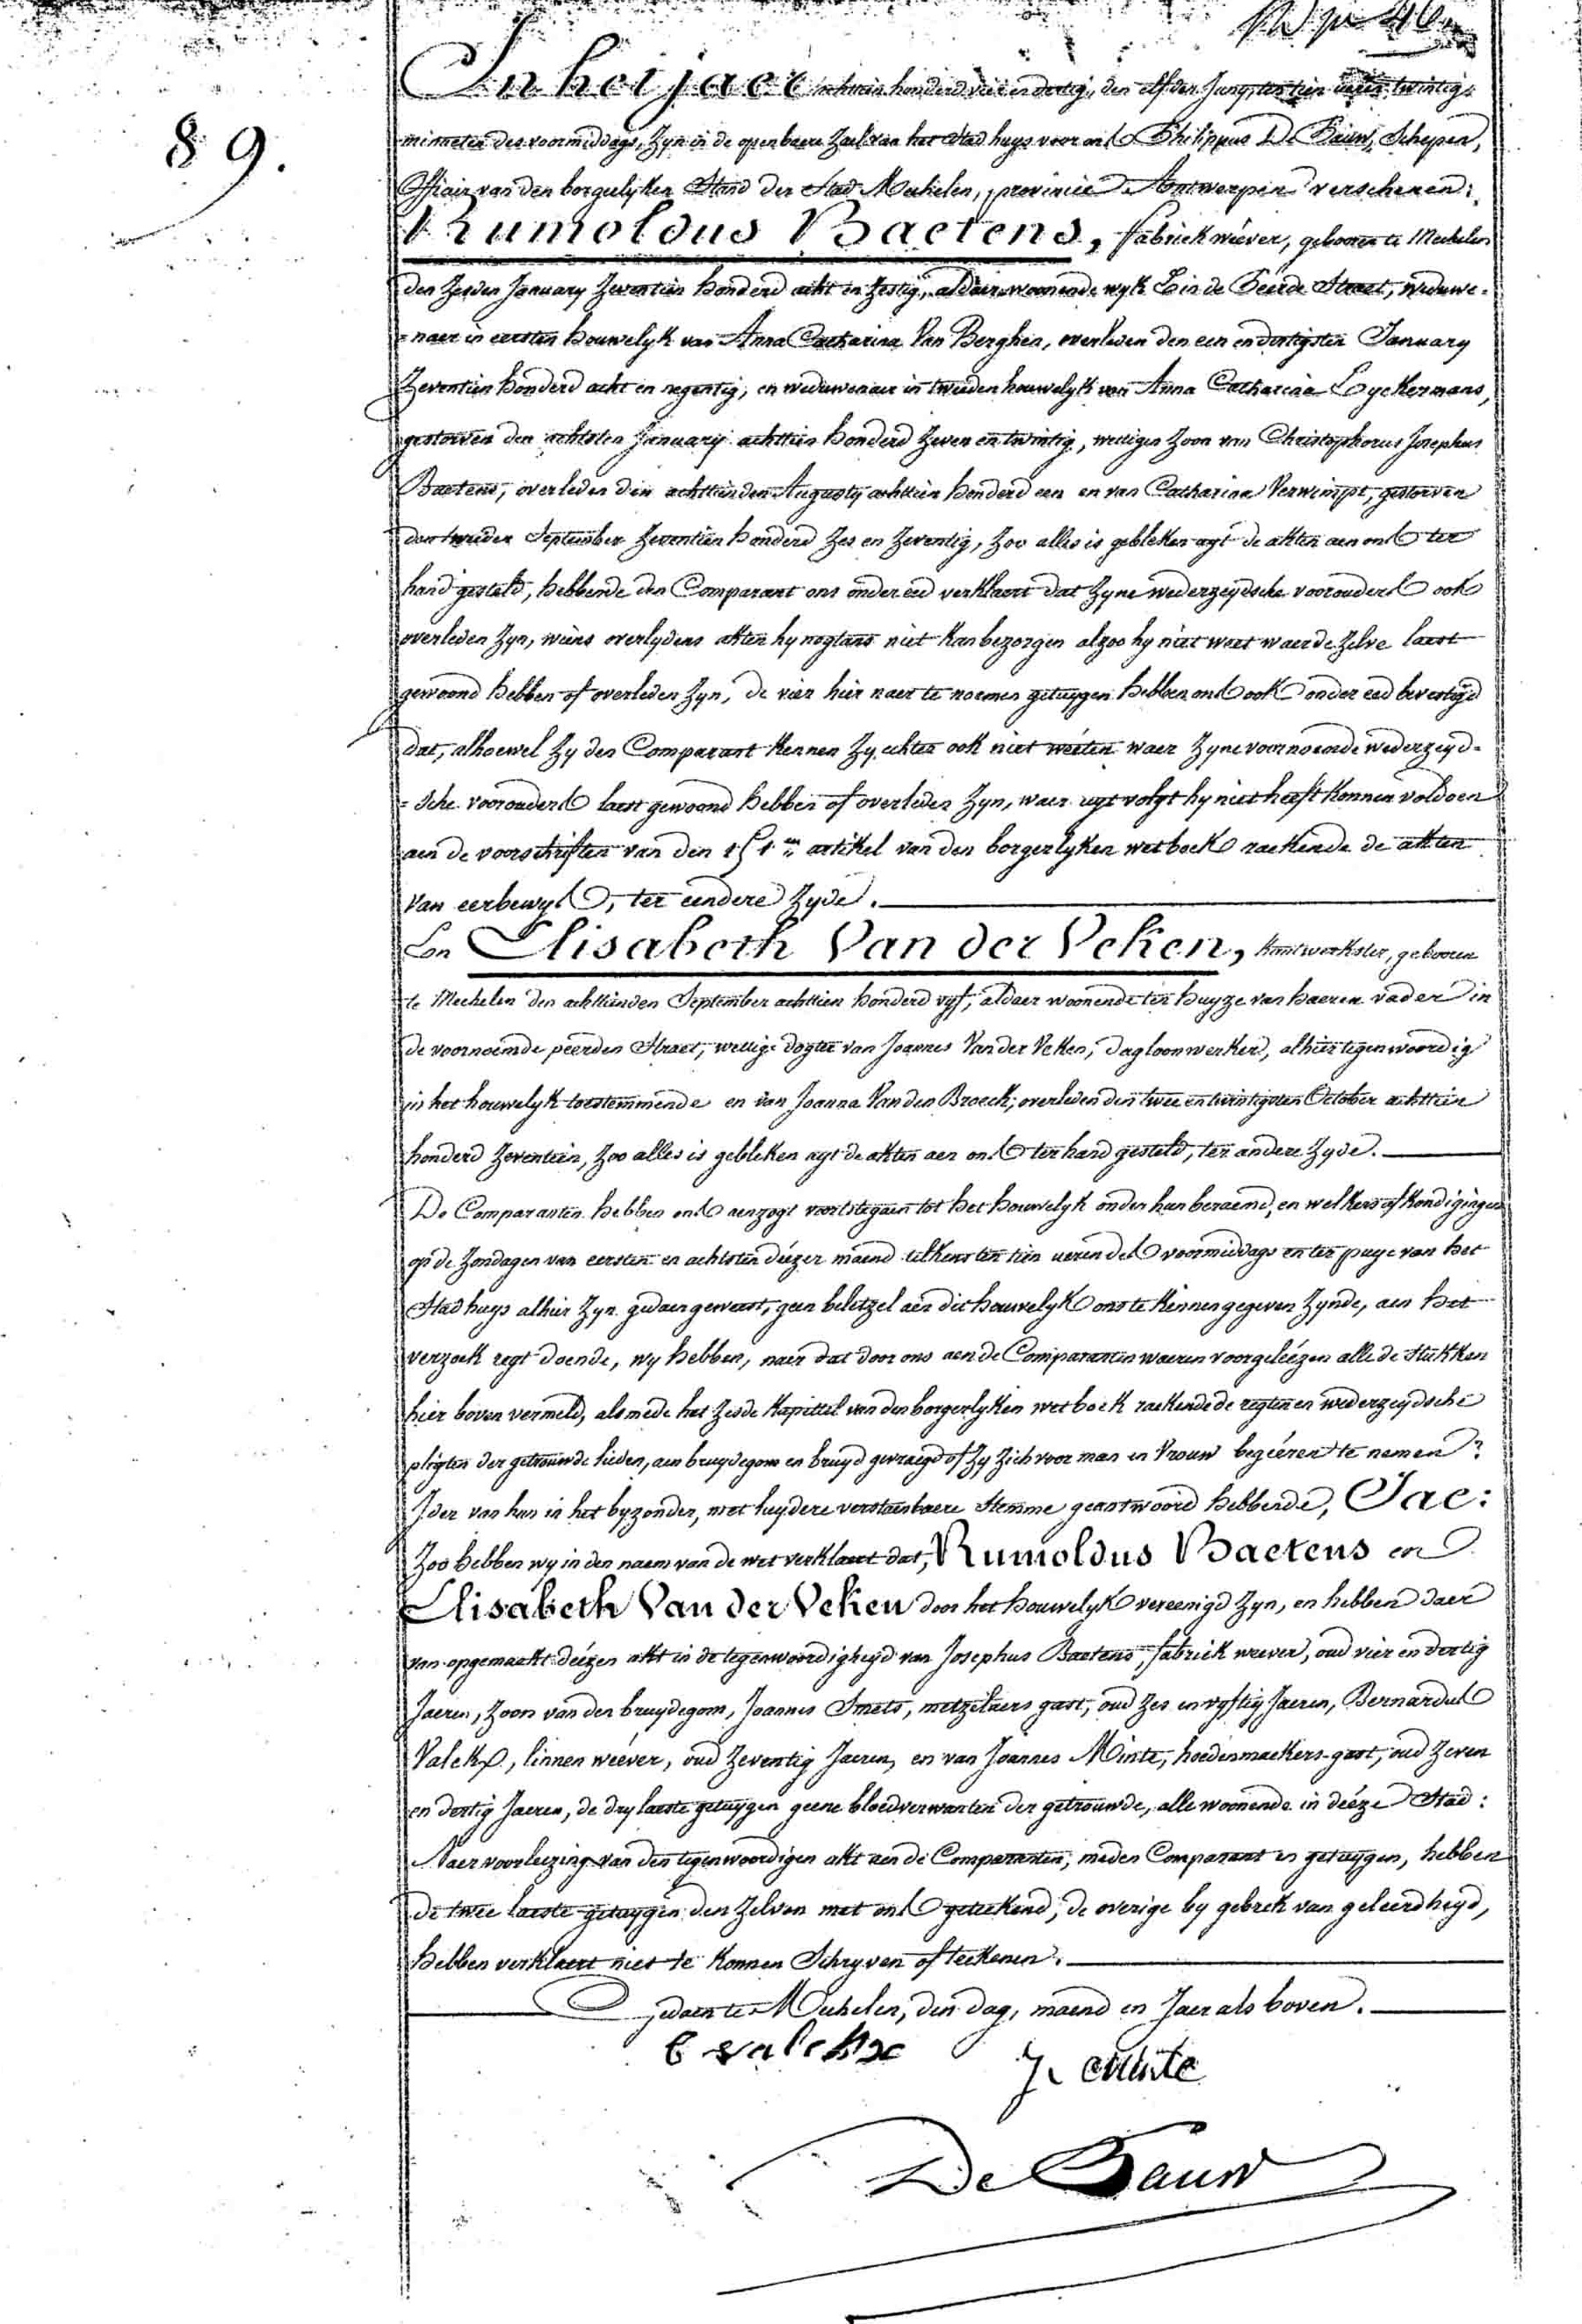 89.
In het jaer achttien honderd vier en dertig, den elfden Juny, ten tien ueren twintig
minneten des voormiddags, zyn in de openbaere zael van het Stad huys voor ons Philippus De Bauw, Schepen,
Officier van den borgerlyken Stand der Stad Mechelen, provincie Antwerpen verschenen:
Rumoldus Baetens, fabriek wéever, gebooren te Mechelen
den zesden January zeventien honderd acht en zestig, aldaer woonende wyk E in de Peérde Straet, weduwe-
=naer in eersten houwelyk van Anna Catharina Van Berghen, overleden den een en dertigsten January
zeventien honderd acht en negentig, en weduwenaer in tweeden houwelyk van Anna Catharina Loyckermans,
gestorven den achtsten January achttien honderd zeven en twintig, wettigen zoon van Christophorus Josephus
Baetens, overleden den achttienden Augusty achttien honderd een en van Catharina Verwimpt, gestorven
den tweeden September zeventien honderd zes en zeventig, zoo alles is gebleken uyt de akten aen ons ter
hand gesteld, hebbende den Comparant ons onder eed verklaert dat zyne wederzeydsche voorouders ook
overleden zyn, wiens overlydens akten hy nogtans niet kan bezorgen alzoo hy niet weet waer de zelve laest
gewoond hebben of overleden zyn, de vier hier naer te noemen getuygen hebben ons ook onder eed bevestigd
dat, alhoewel zy den Comparant kennen zy echter ook niet wéeten waer zyne voornoemde wederzeyd-
=sche voorouders laest gewoond hebben of overleden zyn, waer uyt volgt hy niet heeft konnen voldoen
aen de voorschriften van den 151en artikel van den borgerlyken wetboek raekende de akten
van eerbewys, ter eendere zyde.
En Elisabeth Van der Veken, kantwerkster, gebooren
te Mechelen den achttienden September achttien honderd vyf, aldaer woonende ten huyze van haeren vader in
de voornoemde peérden Straet, wettige dogter van Joannes Van der Veken, dagloonwerker, alhier tegenwoordig
in het houwelyk toestemmende en van Joanna Van den Broeck, overleden den twee en twintigsten October achttien
honderd zeventien, zoo alles is gebleken uyt de akten aen ons ter hand gesteld, ter andere zyde.
De Comparanten hebben ons aenzogt voorts te gaen tot het houwelyk onder hun beraemd, en welkers afkondigingen
op de zondagen van eersten en achtsten déezer maend telkens ten tien ueren des voormiddags en ter puye van het
Stad huys alhier zyn gedaen geweest, geen beletzel aen dit houwelyk ons te kennen gegeven zynde, aen het
verzoek regt doende, wy hebben, naer dat door ons aen de Comparanten waeren voorgeléezen alle de stukken
hier boven vermeld, als mede het zesde kapittel van den borgerlyken wetboek raekende de regten en wederzeydsche
pligten der getrouwde lieden, aen bruydegom en bruyd gevraegd of zy zich voor man en vrouw begéeren te nemen?
Ider van hun in het byzonder, met luydere verstaenbaere Stemme geantwoord hebbende, Jae:
Zoo hebben wy in den naem van de wet verklaert dat, Rumoldus Baetens en
Elisabeth Van der Veken door het houwelyk vereenigd zyn, en hebben daer
van opgemaekt déezen akt in de tegenwoordigheyd van Josephus Baetens, fabriek weever, oud vier en dertig
Jaeren, zoon van den bruydegom, Joannes Smets, metzelaers gast, oud zes en vyftig Jaeren, Bernardus
Valckx, linnen wéever, oud zeventig Jaeren, en van Joannes Minte, hoedenmaekers-gast, oud zeven
en dertig Jaeren, de dry laeste getuygen geene bloedverwanten der getrouwde, alle woonende in déeze Stad:
Naer voorlezing van den tegenwoordigen akt aen de Comparanten, meden Comparant en getuygen, hebben
de twee laeste getuygen den zelven met ons geteekend, de overige by gebrek van geleerdheyd,
hebben verklaert niet te konnen Schryven of teekenen.
Gedaen te Mechelen, den dag, maend en Jaer als boven.
B valckx J. Minte
De Bauw